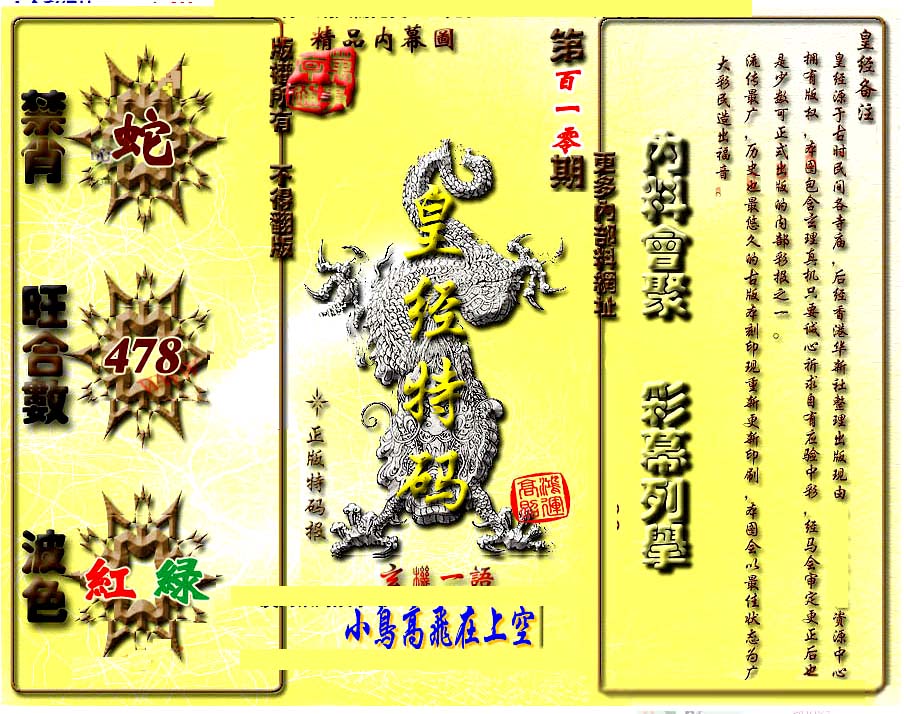 精品内幕圖
版權所有 不得翻版
第百一零期
更多内部料網址
禁肖
蛇
旺合數
478
波色
紅 綠
皇经特码
正版特码报
鴻運高照
玄機一語
小鳥高飛在上空
内料會聚
彩幕列舉
皇经备注
皇经源于古时民间各寺庙，后经香港华新社整理出版现由 资源中心
拥有版权，本图包含玄理真机只要诚心祈求自有应验中彩，经马会审定更正后也
是少数可正式出版的内部彩报之一。
流传最广，历史也最悠久的古版本刻印现重新更新印刷，本图会以最佳状态为广
大彩民造出福音